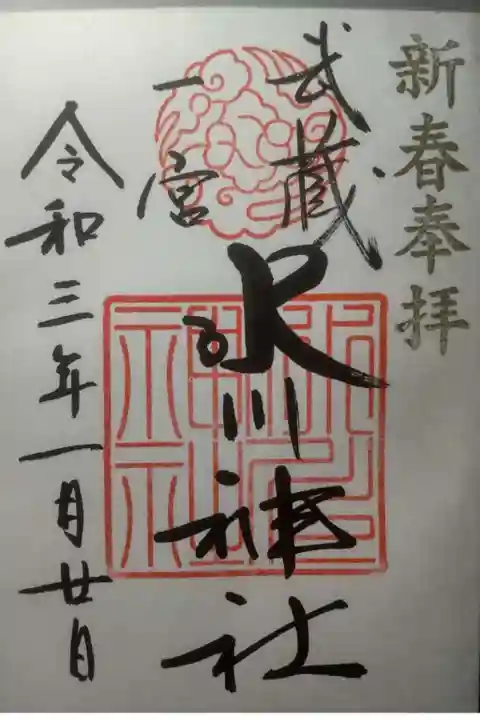 新春奉拝
武蔵
一宮
氷川神社
令和三年一月廿日